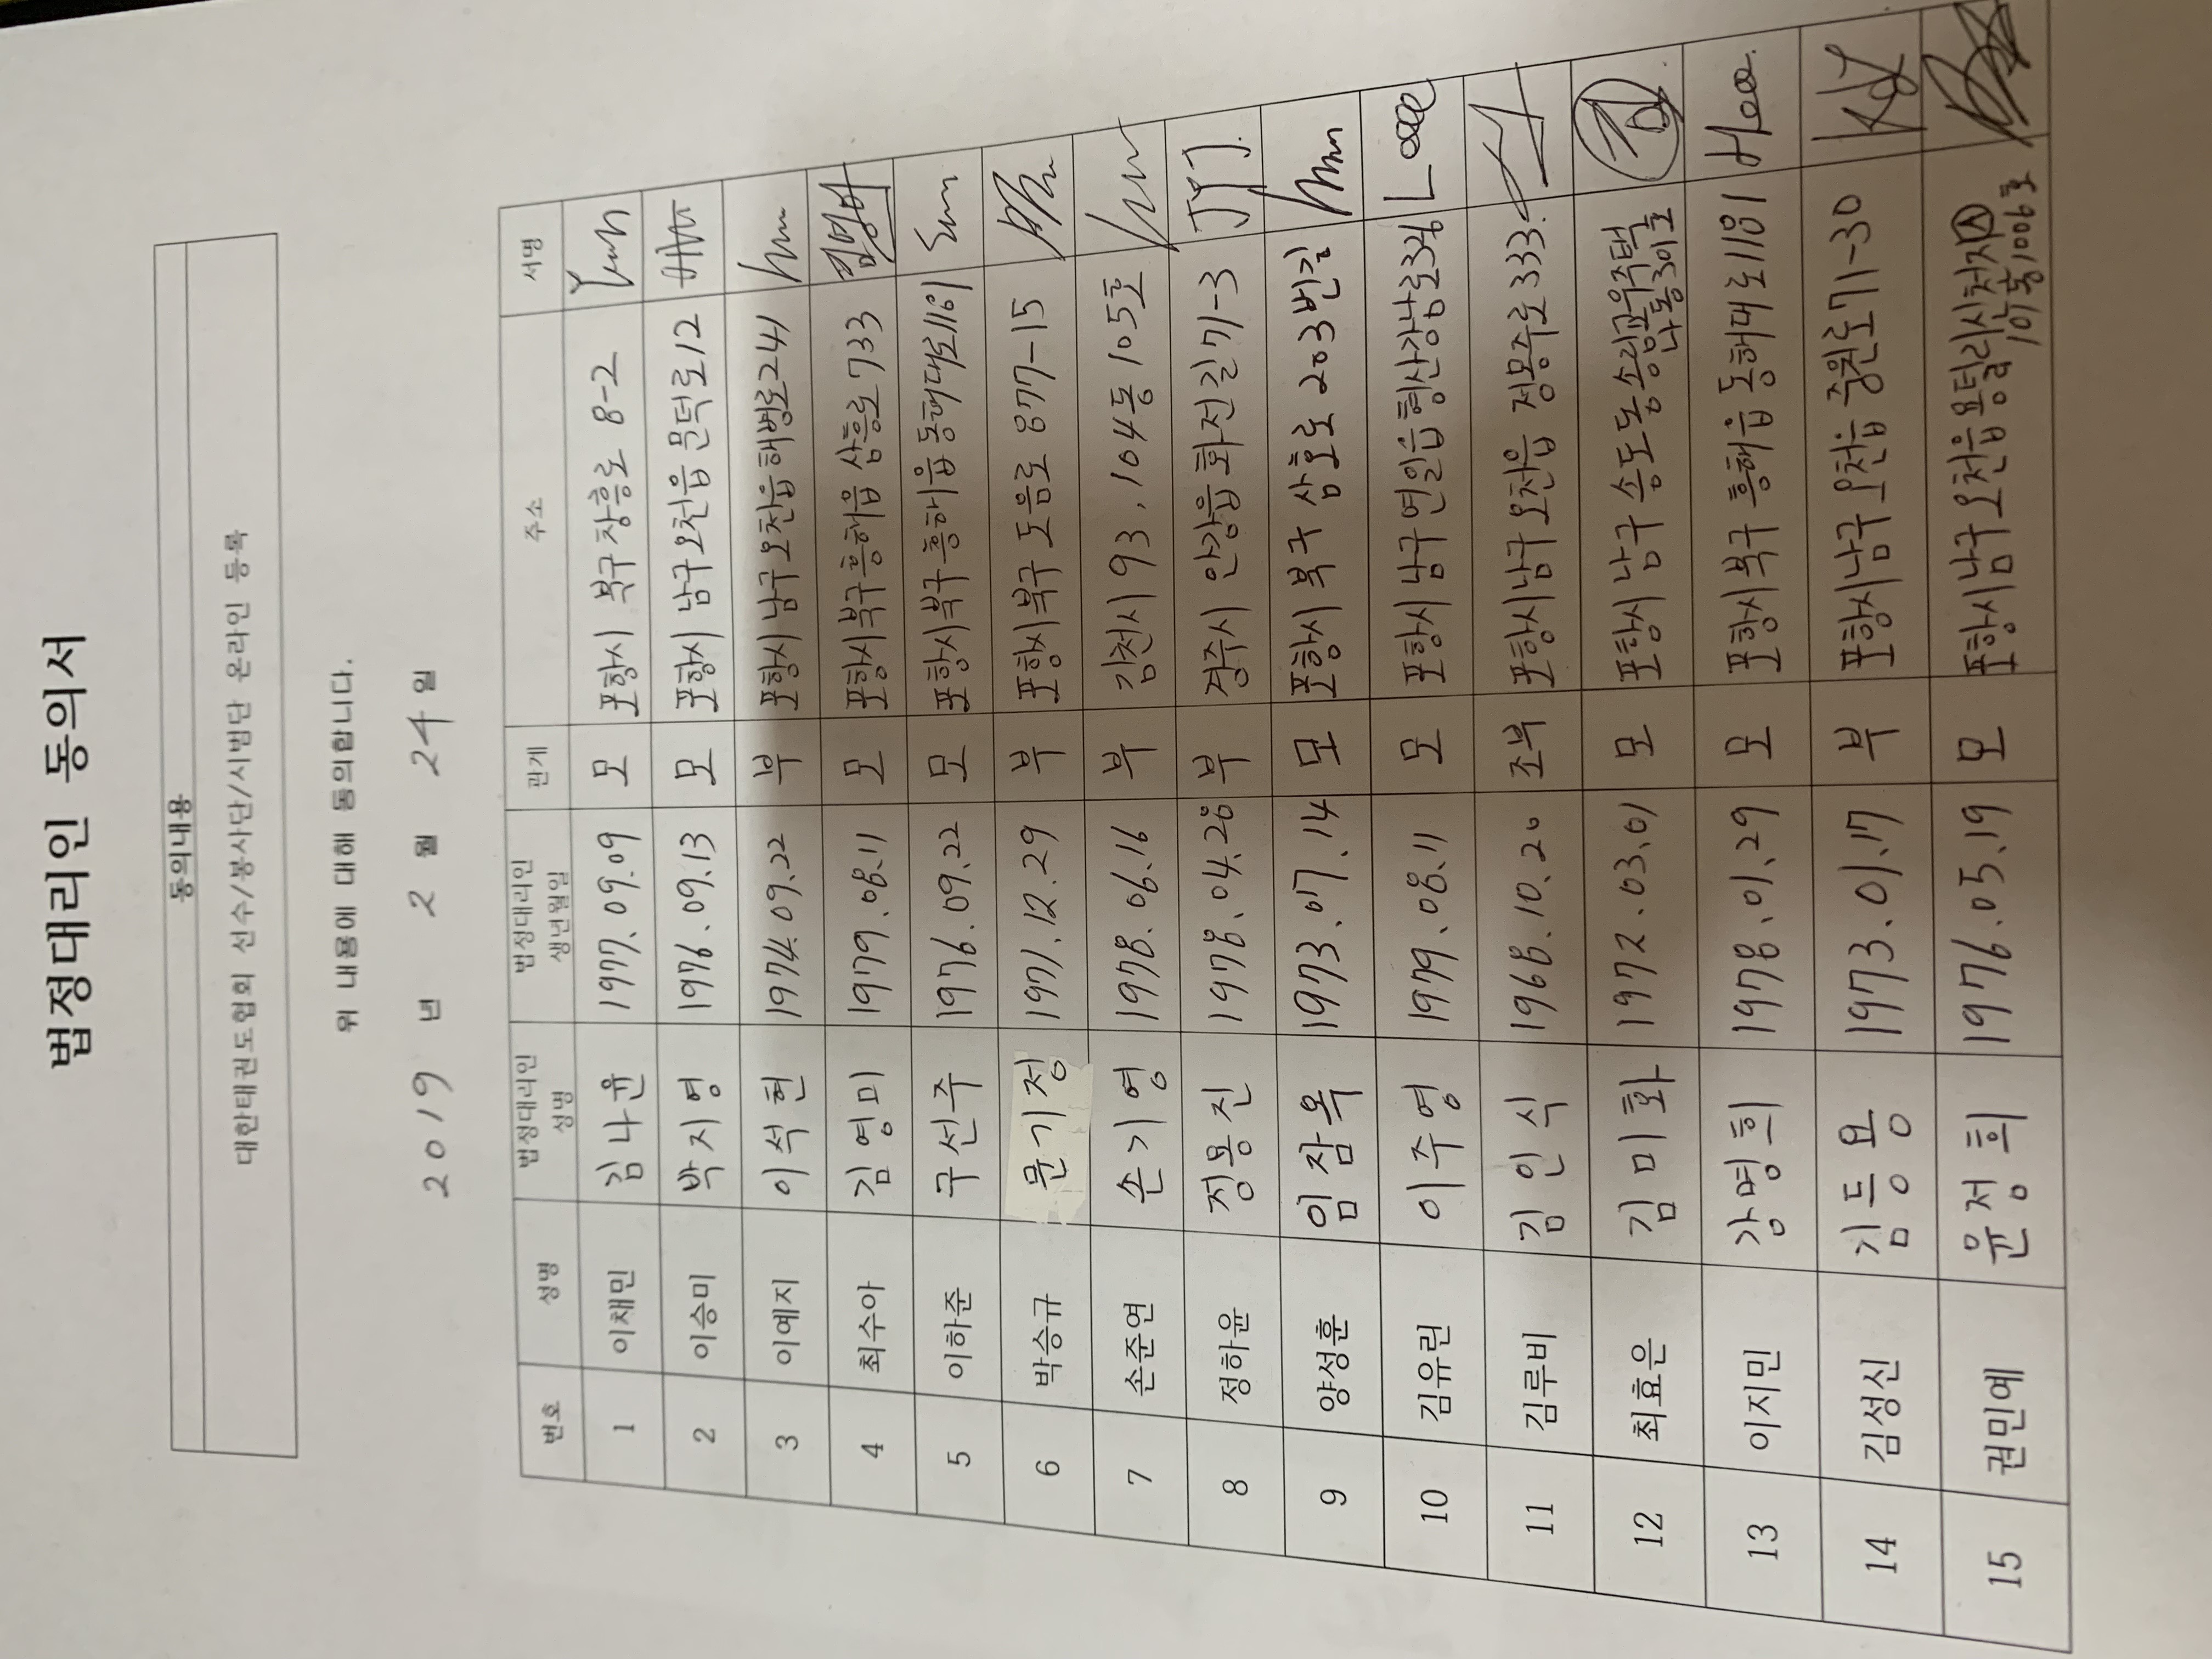 법정대리인 동의서
동의내용
대한태권도협회 선수/봉사단/시범단 온라인 등록
위 내용에 대해 동의합니다.
2019 년 2 월 24 일
번호 성명 법정대리인 성명 법정대리인 생년월일 관계 주소 서명
1 이채민 김나윤 1977.09.09 모 포항시 북구 장흥로 8-2
2 이승미 박지영 1976.09.13 모 포항시 남구 오천읍 문덕로 12
3 이예지 이석현 1974.09.22 부 포항시 남구 오천읍 해병로 241
4 최수아 김영미 1979.08.11 모 포항시 북구 흥해읍 삼흥로 733
5 이하준 구선주 1976.09.22 모 포항시 북구 흥해읍 동해대로 1161
6 박승규 문기정 1971.12.29 부 포항시 북구 도음로 877-15
7 손준연 손기영 1978.06.16 부 김천시 93, 104동 105호
8 정하윤 정용진 1978.04.28 부 경주시 안강읍 화전길 71-3 JYJ.
9 양성훈 임잠옥 1973.07.14 모 포항시 북구 삼호로 203번길
10 김유린 이주영 1979.08.11 모 포항시 남구 연일읍 형산강남로 Lee
11 김루비 김인식 1968.10.20 조부 포항시 남구 오천읍 정몽주로 333.
12 최효은 김미화 1972.03.01 모 포항시 남구 송도동 송림교위주택 나동 301호
13 이지민 강명희 1978.01.29 모 포항시 북구 흥해읍 동해대로 1181 Hee.
14 김성신 김등용 1973.01.17 부 포항시 남구 오천읍 중원로 71-30
15 권민예 윤정희 1976.05.19 모 포항시 남구 오천읍 용덕리 101동 1006호